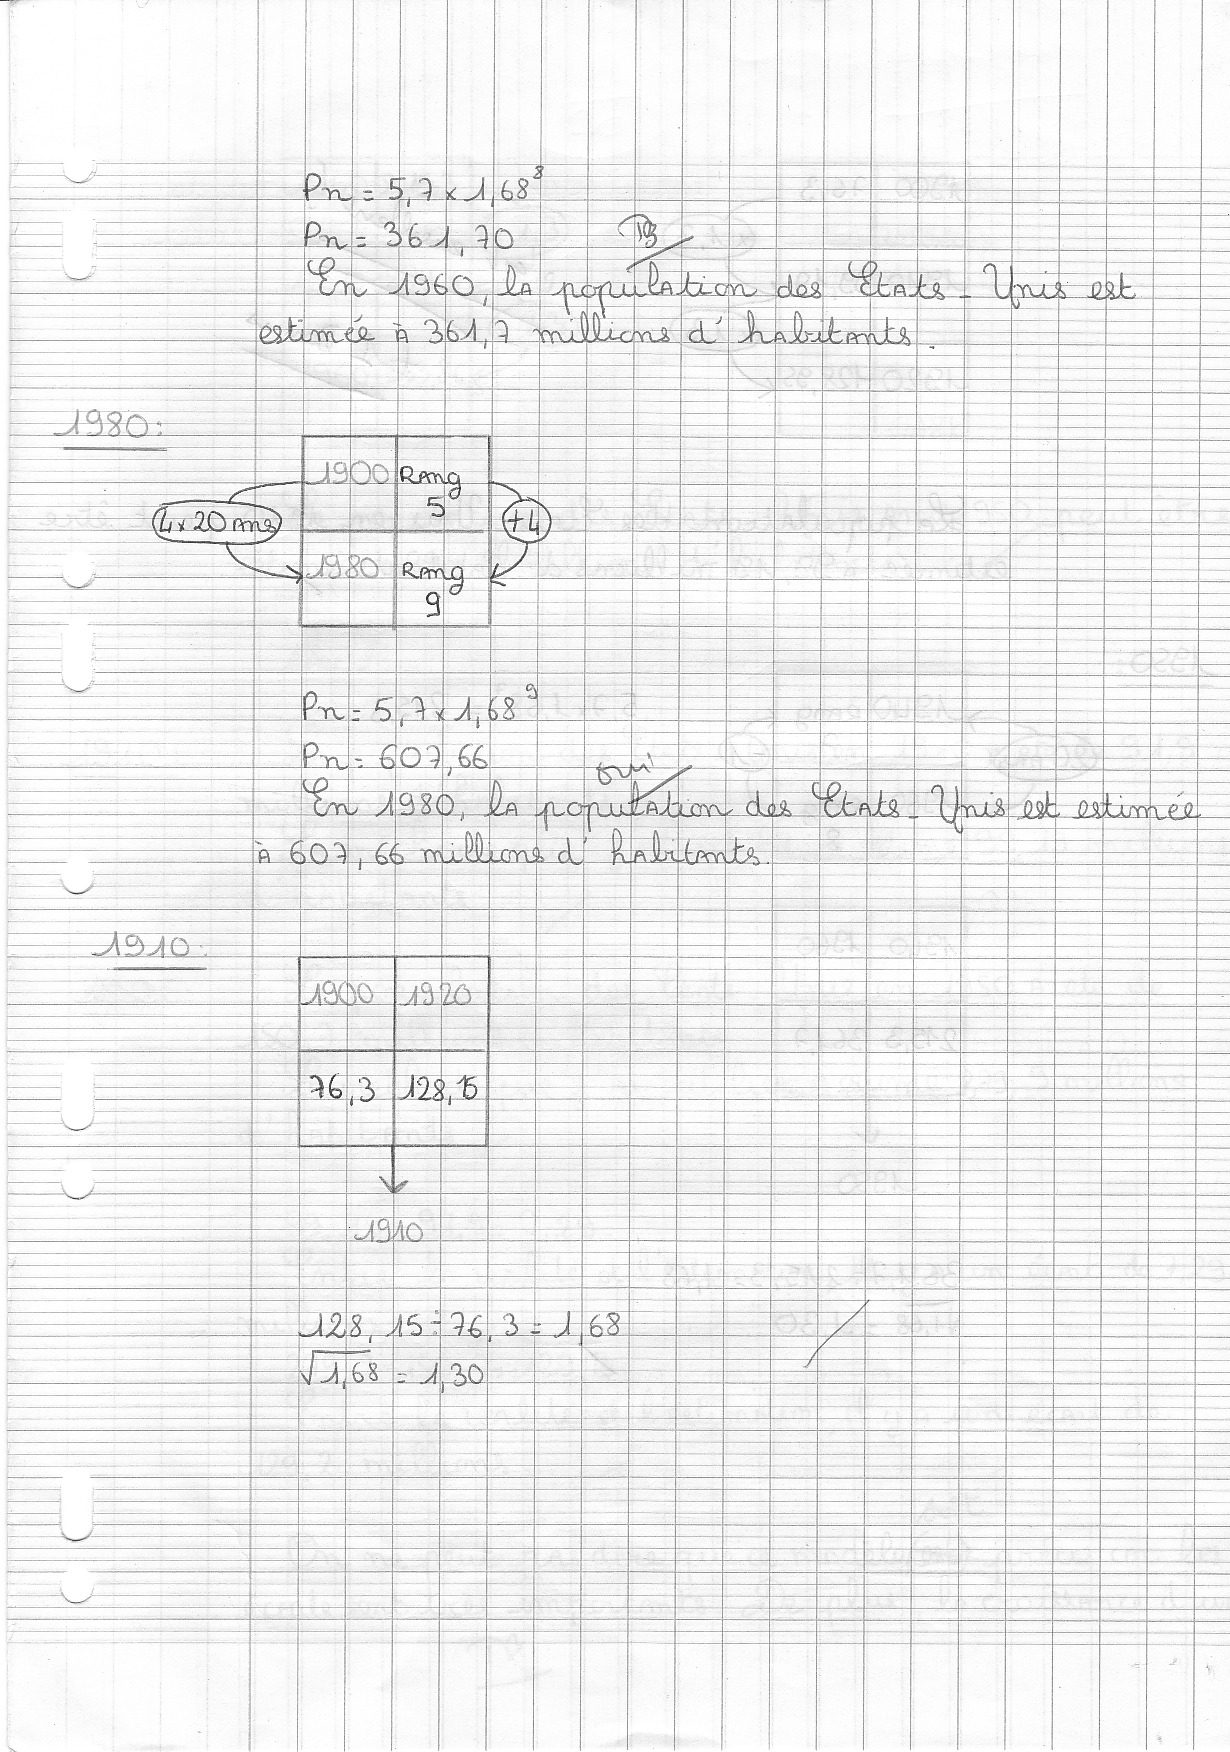 Pn = 5,7 x 1,68⁸
Pn = 361,70
TB
En 1960, la population des Etats-Unis est
estimée à 361,7 millions d'habitants.
1980:
1900 Rang 5
4 x 20 ans +4
1980 Rang 9
Pn = 5,7 x 1,68⁹
Pn = 607,66
oui
En 1980, la population des Etats-Unis est estimée
à 607,66 millions d'habitants.
1910:
1900 1920
76,3 128,15
1910
128,15 ÷ 76,3 = 1,68
√1,68 = 1,30